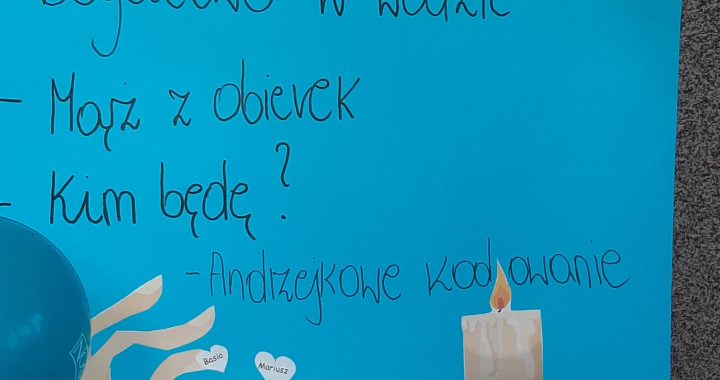 w wodzie
- Mąż z obierek
- Kim będę?
- Andrzejkowe kodowanie
Basia
Mariusz